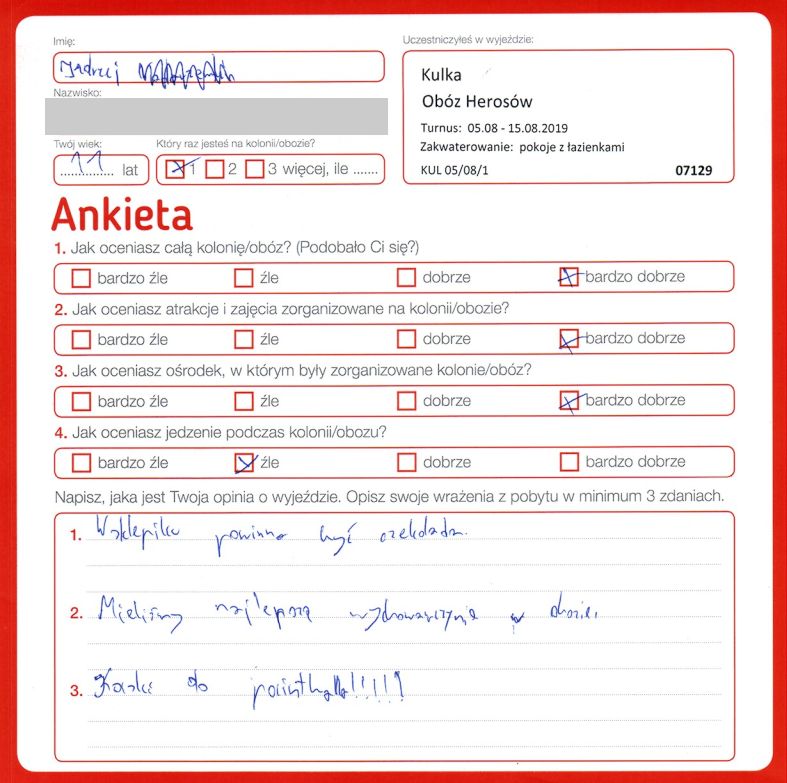 Imię:
Uczestniczyłeś w wyjeździe:
Jędrzej
Kulka
Nazwisko:
Obóz Herosów
Turnus: 05.08 - 15.08.2019
Twój wiek:
Który raz jesteś na kolonii/obozie?
Zakwaterowanie: pokoje z łazienkami
11 lat
1 2 3 więcej, ile .......
KUL 05/08/1
07129
Ankieta
1. Jak oceniasz całą kolonię/obóz? (Podobało Ci się?)
bardzo źle źle dobrze bardzo dobrze
2. Jak oceniasz atrakcje i zajęcia zorganizowane na kolonii/obozie?
bardzo źle źle dobrze bardzo dobrze
3. Jak oceniasz ośrodek, w którym były zorganizowane kolonie/obóz?
bardzo źle źle dobrze bardzo dobrze
4. Jak oceniasz jedzenie podczas kolonii/obozu?
bardzo źle źle dobrze bardzo dobrze
Napisz, jaka jest Twoja opinia o wyjeździe. Opisz swoje wrażenia z pobytu w minimum 3 zdaniach.
1. W sklepiku powinna być czekolada.
2. Mieliśmy najlepszą wychowawczynie w
3. do paintballa!!!!!